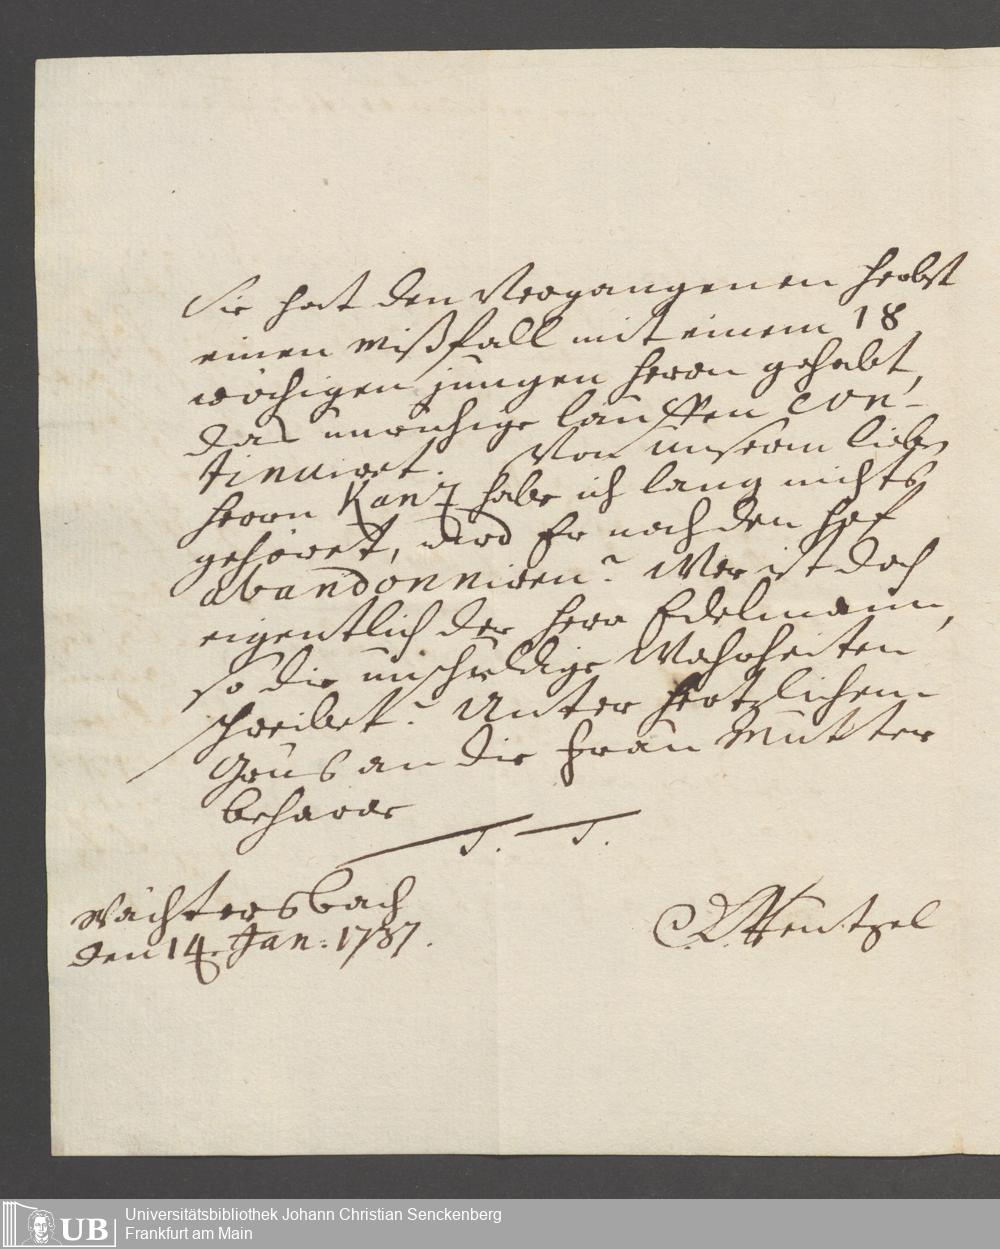 Sie hat den Vergangenen Herbst
einen Mißfall mit einem 18
wöchigen jungen Herrn gehabt,
das unruhige lauffen con-
tinuiret. Von unserm lieben
Herrn Kanz habe ich lang nichts
gehöret, wird Er noch den Hof
abandonniren? Wer ist doch
eigentlich der Herr Edelmann,
so die unschuldige Wahrheiten
schreibet? Unter hertzlichem
Grus an die Frau Mutter
beharre
T. T.
Wächtersbach
den 14. Jan: 1737.
Wentzel
UB
Universitätsbibliothek Johann Christian Senckenberg
Frankfurt am Main